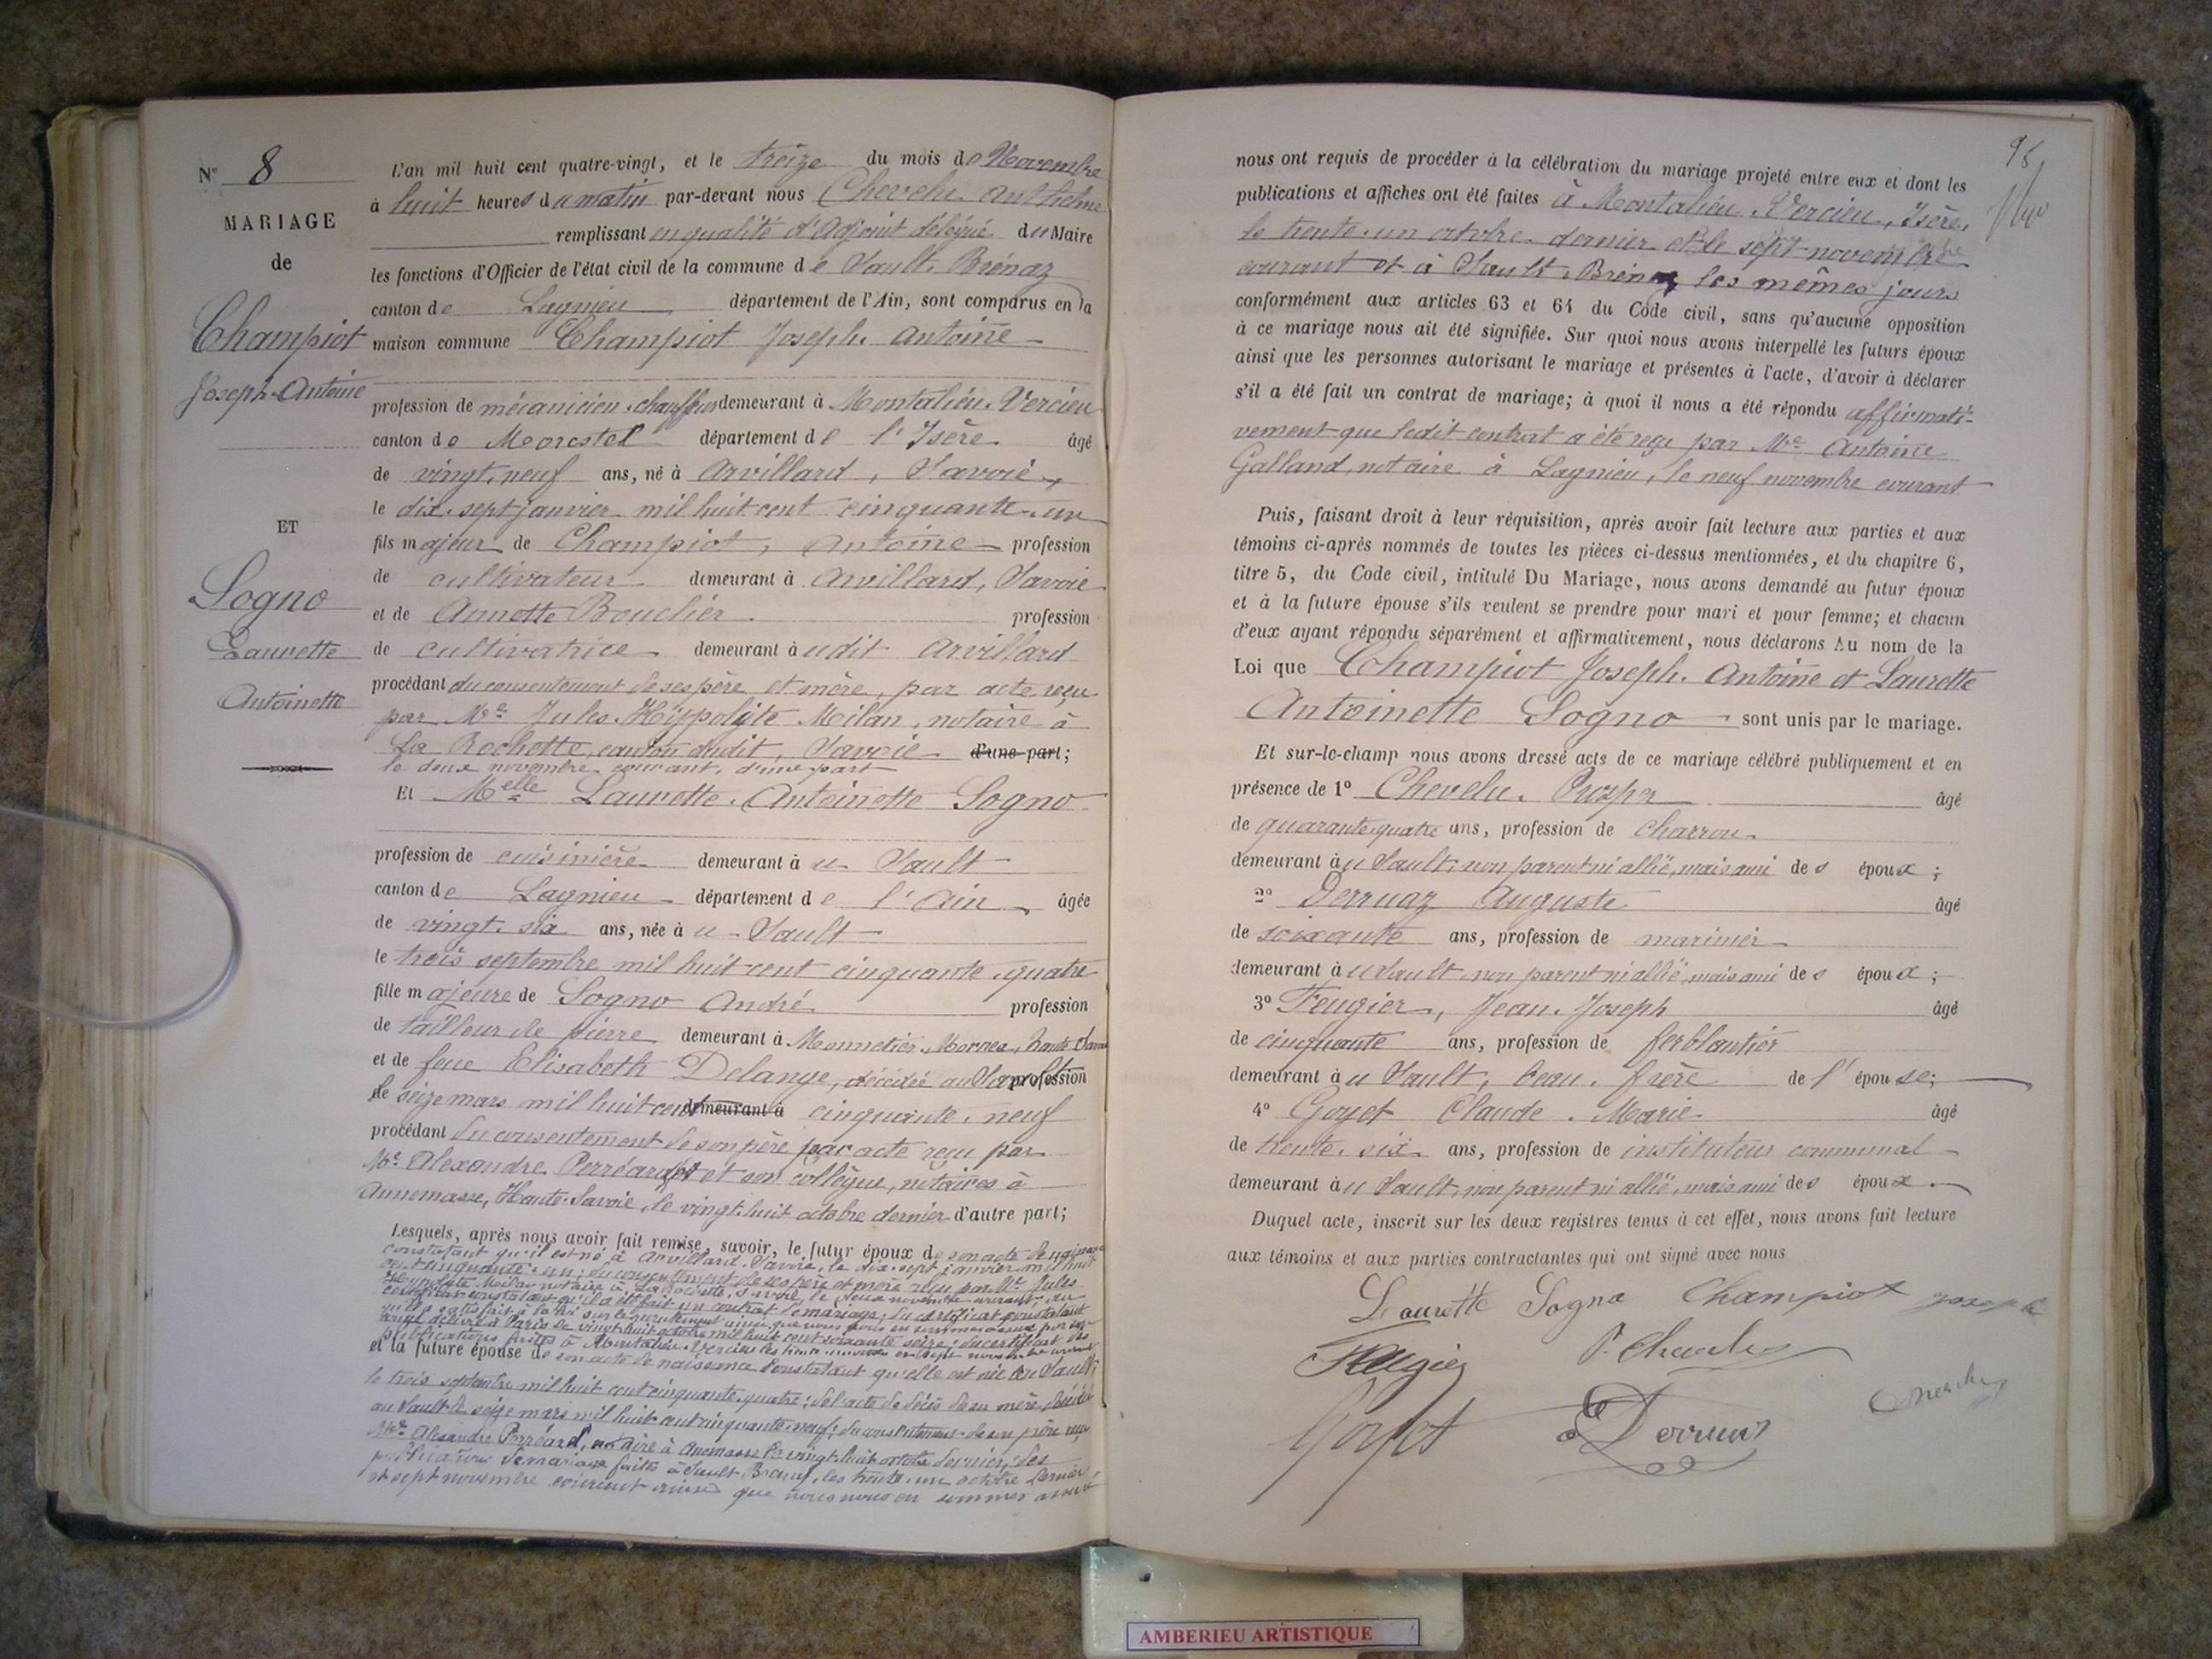 N° 8
MARIAGE
de
Champiot
Joseph-Antoine
ET
Sogno
Laurette
Antoinette
L'an mil huit cent quatre-vingt, et le treize du mois de Novembre
à huit heures du matin par-devant nous Chevelu Anthelme
remplissant en qualité d'Adjoint délégué du Maire
les fonctions d'Officier de l'état civil de la commune de Sault-Brénaz
canton de Lagnieu département de l'Ain, sont comparus en la
maison commune Champiot Joseph-Antoine
profession de mécanicien-chauffeur demeurant à Montalieu-Vercieu
canton de Morestel département de l'Isère âgé
de vingt-neuf ans, né à Arvillard, Savoie,
le dix-sept janvier mil huit cent cinquante-un
fils majeur de Champiot, Antoine profession
de cultivateur demeurant à Arvillard, Savoie
et de Annette Bouchier profession
de cultivatrice demeurant à udit Arvillard
procédant du consentement de ses père et mère, par acte reçu
par Me Jules-Hippolyte Milan, notaire à
La Rochette, canton dudit, Savoie d'une part;
le deux novembre courant, d'une part
Et Melle Laurette-Antoinette Sogno
profession de cuisinière demeurant à u Sault
canton de Lagnieu département de l'Ain, âgée
de vingt-six ans, née à u Sault
le trois septembre mil huit cent cinquante-quatre
fille majeure de Sogno André profession
de tailleur de pierre demeurant à Monnetier-Mornex, haute Savoie
et de feue Elisabeth Delange, décédée au Sault profession
le seize mars mil huit cent demeurant à cinquante-neuf
procédant du consentement de son père par acte reçu par
Me Alexandre Perréard et son collègue, notaires à
Annemasse, Haute-Savoie, le vingt-huit octobre dernier d'autre part;
Lesquels, après nous avoir fait remise, savoir, le futur époux de son acte de naissance
constatant qu'il est né à Arvillard, Savoie, le dix-sept janvier mil huit
cent cinquante-un; du consentement de ses père et mère reçu par Me Jules
Hippolyte Milan notaire à La Rochette, Savoie, le deux novembre courant; du
certificat constatant qu'il a été fait un contrat de mariage; du certificat constatant
qu'il a satisfait à la loi sur le recrutement
délivré à Paris le vingt-huit octobre mil huit cent soixante seize; du certificat des
publications faites à Montalieu-Vercieu les trente-un et sept novembre courant
et la future épouse de son acte de naissance constatant qu'elle est née au Sault,
le trois septembre mil huit cent cinquante-quatre; de l'acte de décès de sa mère décédée
au Sault le seize mars mil huit cent cinquante-neuf; du consentement de son père reçu
Me Alexandre Perréard, notaire à Annemasse le vingt-huit octobre dernier, des
publications de mariage faites à Sault-Brénaz, les trente-un octobre dernier
et sept novembre courant ainsi que nous nous en sommes assuré
98
nous ont requis de procéder à la célébration du mariage projeté entre eux et dont les
publications et affiches ont été faites à Montalieu-Vercieu, Isère,
le trente-un octobre dernier et le sept novembre
courant et à Sault-Brénaz les mêmes jours
conformément aux articles 63 et 64 du Code civil, sans qu'aucune opposition
à ce mariage nous ait été signifiée. Sur quoi nous avons interpellé les futurs époux
ainsi que les personnes autorisant le mariage et présentes à l'acte, d'avoir à déclarer
s'il a été fait un contrat de mariage; à quoi il nous a été répondu affirmati-
vement que ledit contrat a été reçu par Me Antoine
Galland, notaire à Lagnieu, le neuf novembre courant
Puis, faisant droit à leur réquisition, après avoir fait lecture aux parties et aux
témoins ci-après nommés de toutes les pièces ci-dessus mentionnées, et du chapitre 6,
titre 5, du Code civil, intitulé Du Mariage, nous avons demandé au futur époux
et à la future épouse s'ils veulent se prendre pour mari et pour femme; et chacun
d'eux ayant répondu séparément et affirmativement, nous déclarons Au nom de la
Loi que Champiot Joseph-Antoine et Laurette
Antoinette Sogno sont unis par le mariage.
Et sur-le-champ nous avons dressé acte de ce mariage célébré publiquement et en
présence de 1° Chevelu Prosper âgé
de quarante-quatre ans, profession de charron
demeurant à u Sault, non parent ni allié, mais ami de s époux;
2° Derruaz Auguste âgé
de soixante ans, profession de marinier
demeurant à u Sault, non parent ni allié, mais ami de s époux;
3° Feugier, Jean-Joseph âgé
de cinquante ans, profession de ferblantier
demeurant à u Sault, beau-frère de l'épouse;
4° Goyet Claude-Marie âgé
de trente-six ans, profession de instituteur communal
demeurant à u Sault, non parent ni allié, mais ami de s époux.
Duquel acte, inscrit sur les deux registres tenus à cet effet, nous avons fait lecture
aux témoins et aux parties contractantes qui ont signé avec nous
Laurette Sogno Champiot joseph
Feugier P. Chevelu
Goyet Derruaz Chevelu
AMBERIEU ARTISTIQUE